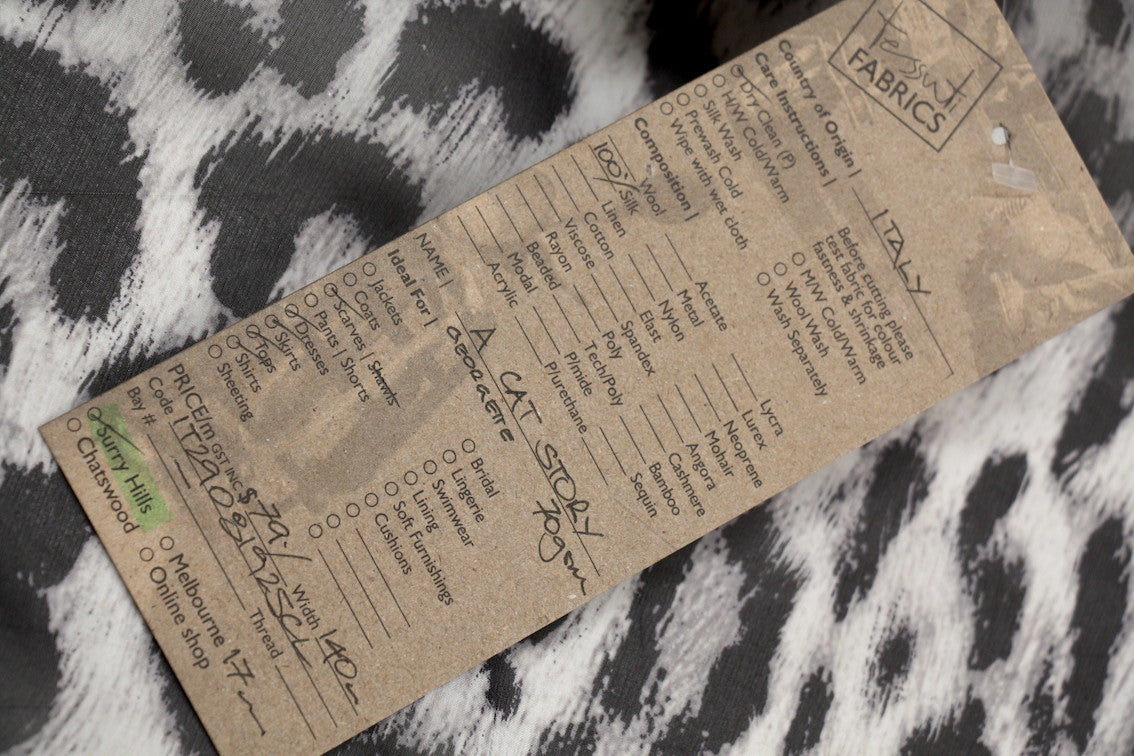 Tessuti
FABRICS
Country of Origin | ITALY
Care Instructions |
Dry Clean (P)
H/W Cold/Warm
Silk Wash
Prewash Cold
Wipe with wet cloth
Before cutting please
test fabric for colour
fastness & shrinkage
M/W Cold/Warm
Wool Wash
Wash Separately
Composition |
Wool
100% Silk
Linen
Cotton
Viscose
Rayon
Beaded
Modal
Acrylic
Acetate
Metal
Nylon
Elast
Spandex
Poly
Tech/Poly
P/mide
P/urethane
Lycra
Lurex
Neoprene
Mohair
Angora
Cashmere
Bamboo
Sequin
NAME | A CAT STORY
GEORGETTE 70gsm
Ideal For |
Jackets
Coats
Scarves | Shawls
Pants | Shorts
Dresses
Skirts
Tops
Shirts
Sheeting
Bridal
Lingerie
Swimwear
Lining
Soft Furnishings
Cushions
PRICE/m GST INC $79./ Width 140
Code Thread
Bay #
Surry Hills
Chatswood
Melbourne
Online shop